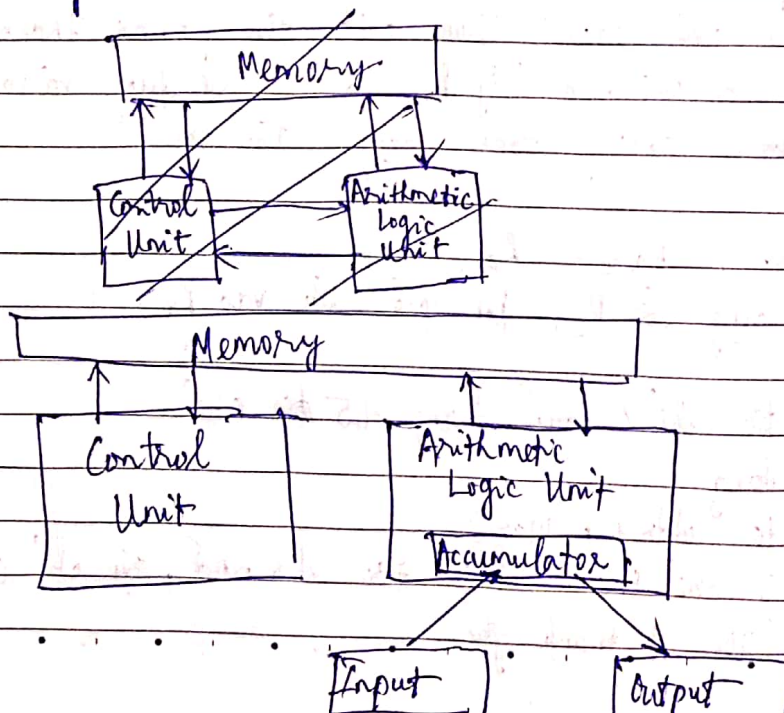 Memory
Control
Unit
Arithmetic
Logic
Unit
Memory
Control
Unit
Arithmetic
Logic Unit
Accumulator
Input
Output